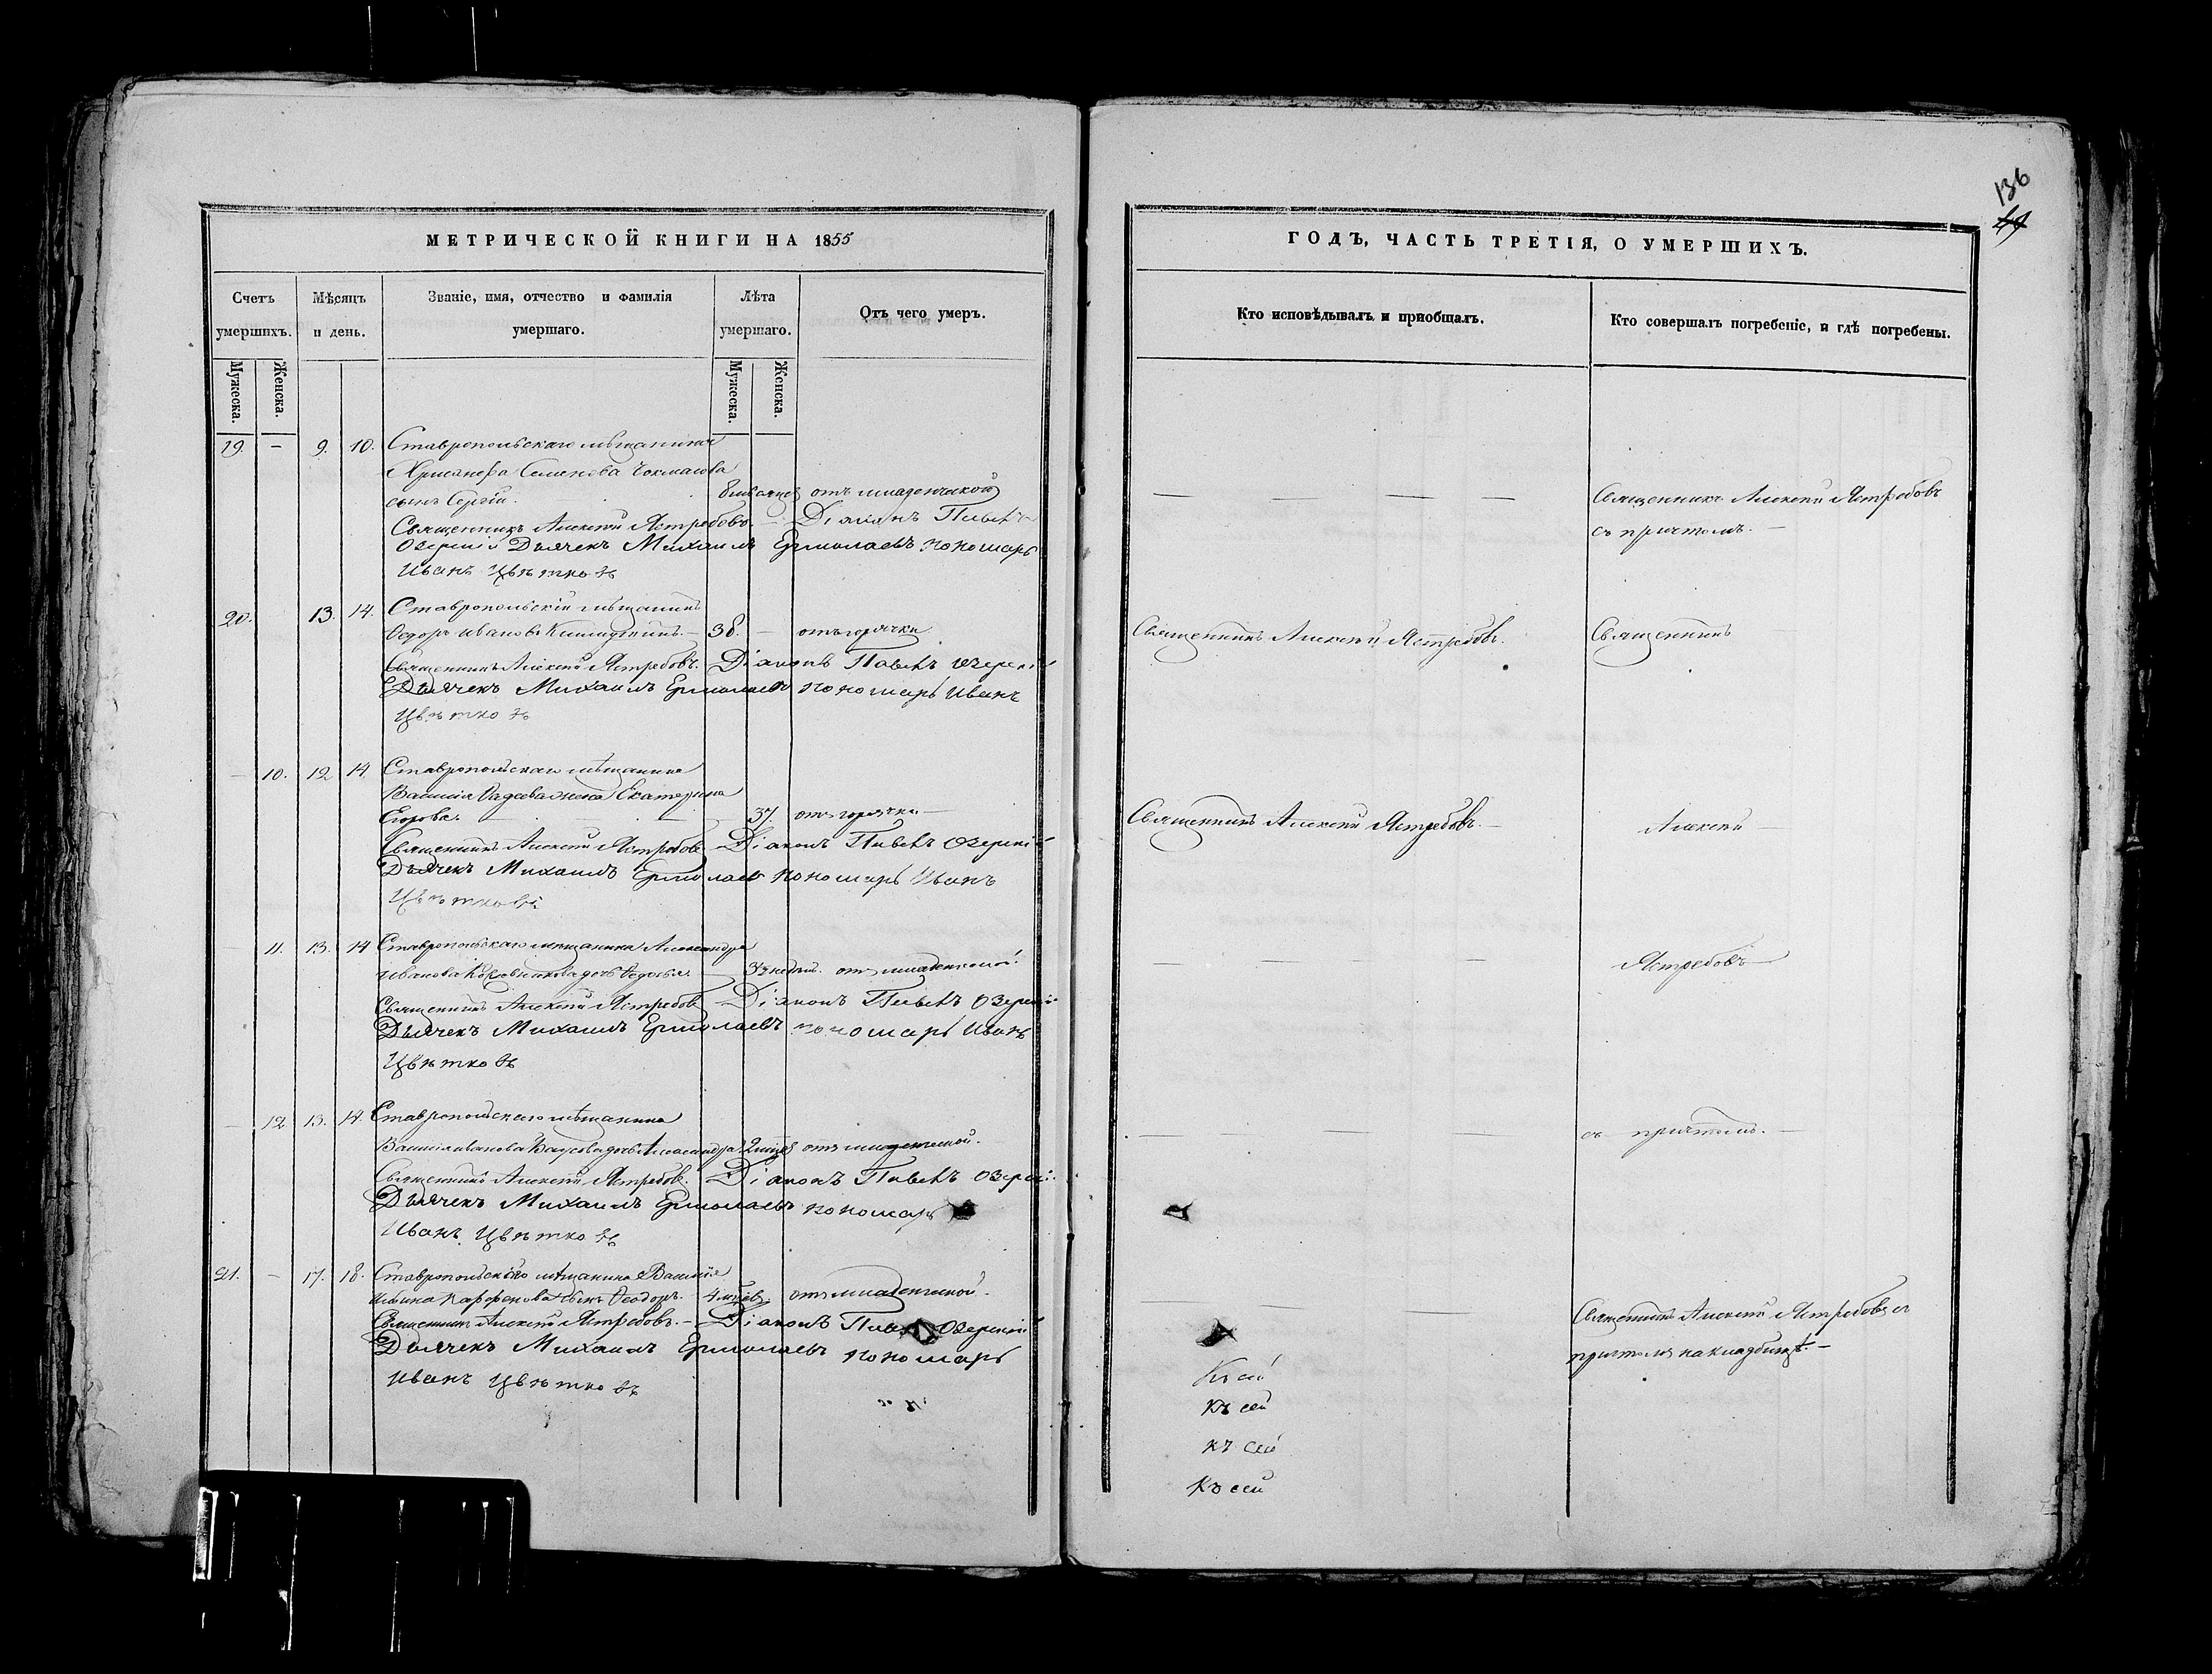 МЕТРИЧЕСКОЙ КНИГИ НА 1855
Счетъ умершихъ.
Мѣсяцъ и день.
Званіе, имя, отчество и фамилія умершаго.
Лѣта умершаго.
Отъ чего умеръ.
Мужеска.
Женска.
Мужеска.
Женска.
19. — 9. 10. Ставропольскаго мѣщанина
Семенова
сынъ Сергій. отъ младенческой
Священникъ Алексѣй Ястребовъ. — Діаконъ Павелъ
Озерскій Дьячекъ Михаилъ Ермолаевъ пономарь
Иванъ Цвѣтковъ
20. 13. 14. Ставропольскій мѣщанинъ
Ѳедоръ Ивановъ 38. — отъ горячки
Священникъ Алексѣй Ястребовъ. Діаконъ Павелъ Озерскій
Дьячекъ Михаилъ Ермолаевъ пономарь Иванъ
Цвѣтковъ
— 10. 12 14. Ставропольскаго мѣщанина
Василія жена Екатерина
Егорова. 37. отъ горячки —
Священникъ Алексѣй Ястребовъ — Діаконъ Павелъ Озерскій
Дьячекъ Михаилъ Ермолаевъ пономарь Иванъ
Цвѣтковъ
11. 13. 14 Ставропольскаго мѣщанина Александра
Иванова дочь 3 недѣль. отъ младенческой.
Священникъ Алексѣй Ястребовъ — Діаконъ Павелъ Озерскій
Дьячекъ Михаилъ Ермолаевъ пономарь Иванъ
Цвѣтковъ
12 13. 14. Ставропольскаго мѣщанина
Василія Иванова дочь Александра 2 отъ младенческой.
Священникъ Алексѣй Ястребовъ. — Діаконъ Павелъ Озерскій
Дьячекъ Михаилъ Ермолаевъ пономарь
Иванъ Цвѣтковъ
21. — 17. 18. Ставропольскаго мѣщанина Василія
сынъ Ѳеодоръ. 4 отъ младенческой.
Священникъ Алексѣй Ястребовъ. — Діаконъ Павелъ Озерскій
Дьячекъ Михаилъ Ермолаевъ пономарь
Иванъ Цвѣтковъ
136
ГОДЪ, ЧАСТЬ ТРЕТІЯ, О УМЕРШИХЪ.
Кто исповѣдывалъ и приобщалъ.
Кто совершалъ погребеніе, и гдѣ погребены.
— — — — Священникъ Алексѣй Ястребовъ
съ причтомъ. —
Священникъ Алексѣй Ястребовъ. Священникъ
Священникъ Алексѣй Ястребовъ. — Алексѣй —
— — — — Ястребовъ —
— — — — съ причтомъ. —
— — — Священникъ Алексѣй Ястребовъ съ
причтомъ на кладбищѣ. —
Къ сей
Къ сей
къ сей
Къ сей